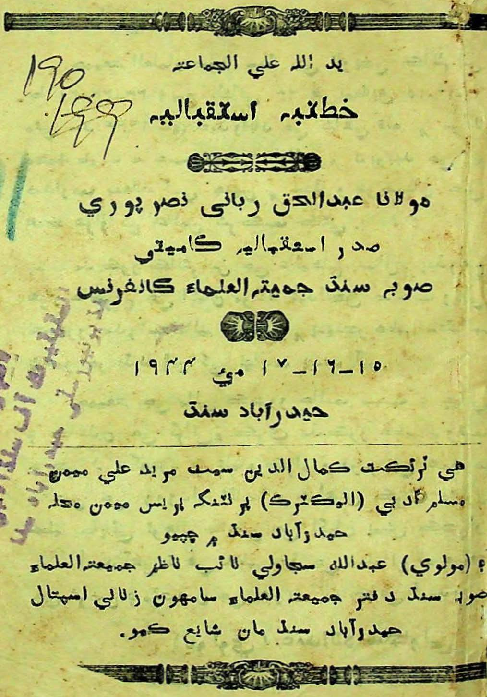 يد الله علي الجماعته
خطبہ استقباليہ
مولانا عبدالحق رباني نصرپوري
صدر استقباليہ ڪاميٽي
صوبہ سنڌ جميعتہ العلماء ڪانفرنس
١٥-١٦-١٧ مئي ١٩٤٤
حيدرآباد سنڌ
هي ٽرئڪٽ ڪمال الدين سميت مريد علي ميمڻ
مسلم ادبي (اليڪٽرڪ) پرنٽنگ پريس ميمڻ محلہ
حيدرآباد سنڌ ۾ ڇپيو
۽ (مولوي) عبدالله سجاولي نائب ناظم جميعتہ العلماء
صوبہ سنڌ دفتر جميعتہ العلماء سامهون زناني اسپتال
حيدرآباد سنڌ مان شايع ڪيو.